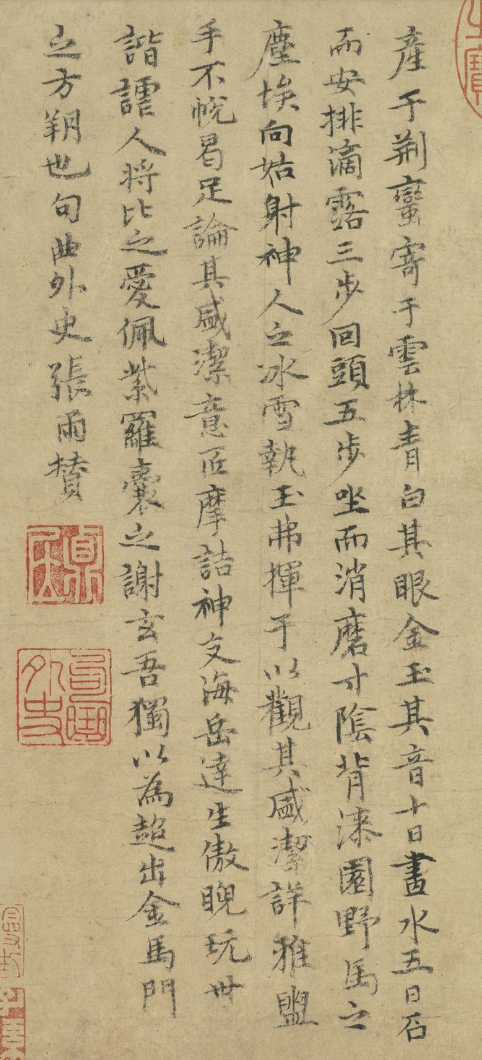 產于荆蠻寄于雲林青白其眼金玉其音十日畫水五日石
而安排滴露三步回頭五步坐而消磨寸陰背漆園野馬之
塵埃向姑射神人之冰雪執玉弗揮于以觀其盛潔詳雅盥
手不帨曷足論其盛潔意匠摩詰神交海岳達生傲睨玩世
諧謔人將比之愛佩紫羅囊之謝玄吾獨以為超出金馬門
之方朔也句曲外史張雨贊
句曲外史